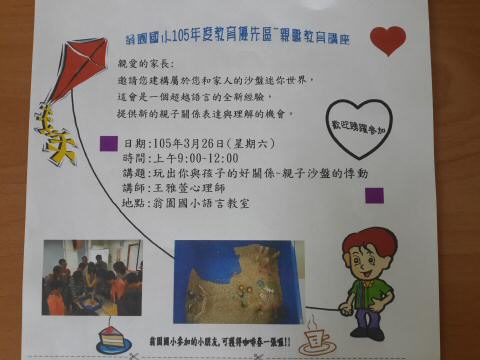 翁園國小105年度教育優先區~親職教育講座
親愛的家長:
邀請您建構屬於您和家人的沙盤迷你世界,
這會是一個超越語言的全新經驗,
提供新的親子關係表達與理解的機會。
歡迎踴躍參加
日期:105年3月26日(星期六)
時間:上午9:00~12:00
講題:玩出你與孩子的好關係~親子沙盤的悸動
講師:王雅萱心理師
地點:翁園國小語言教室
翁園國小參加的小朋友,可獲得咖啡卷一張喔!!